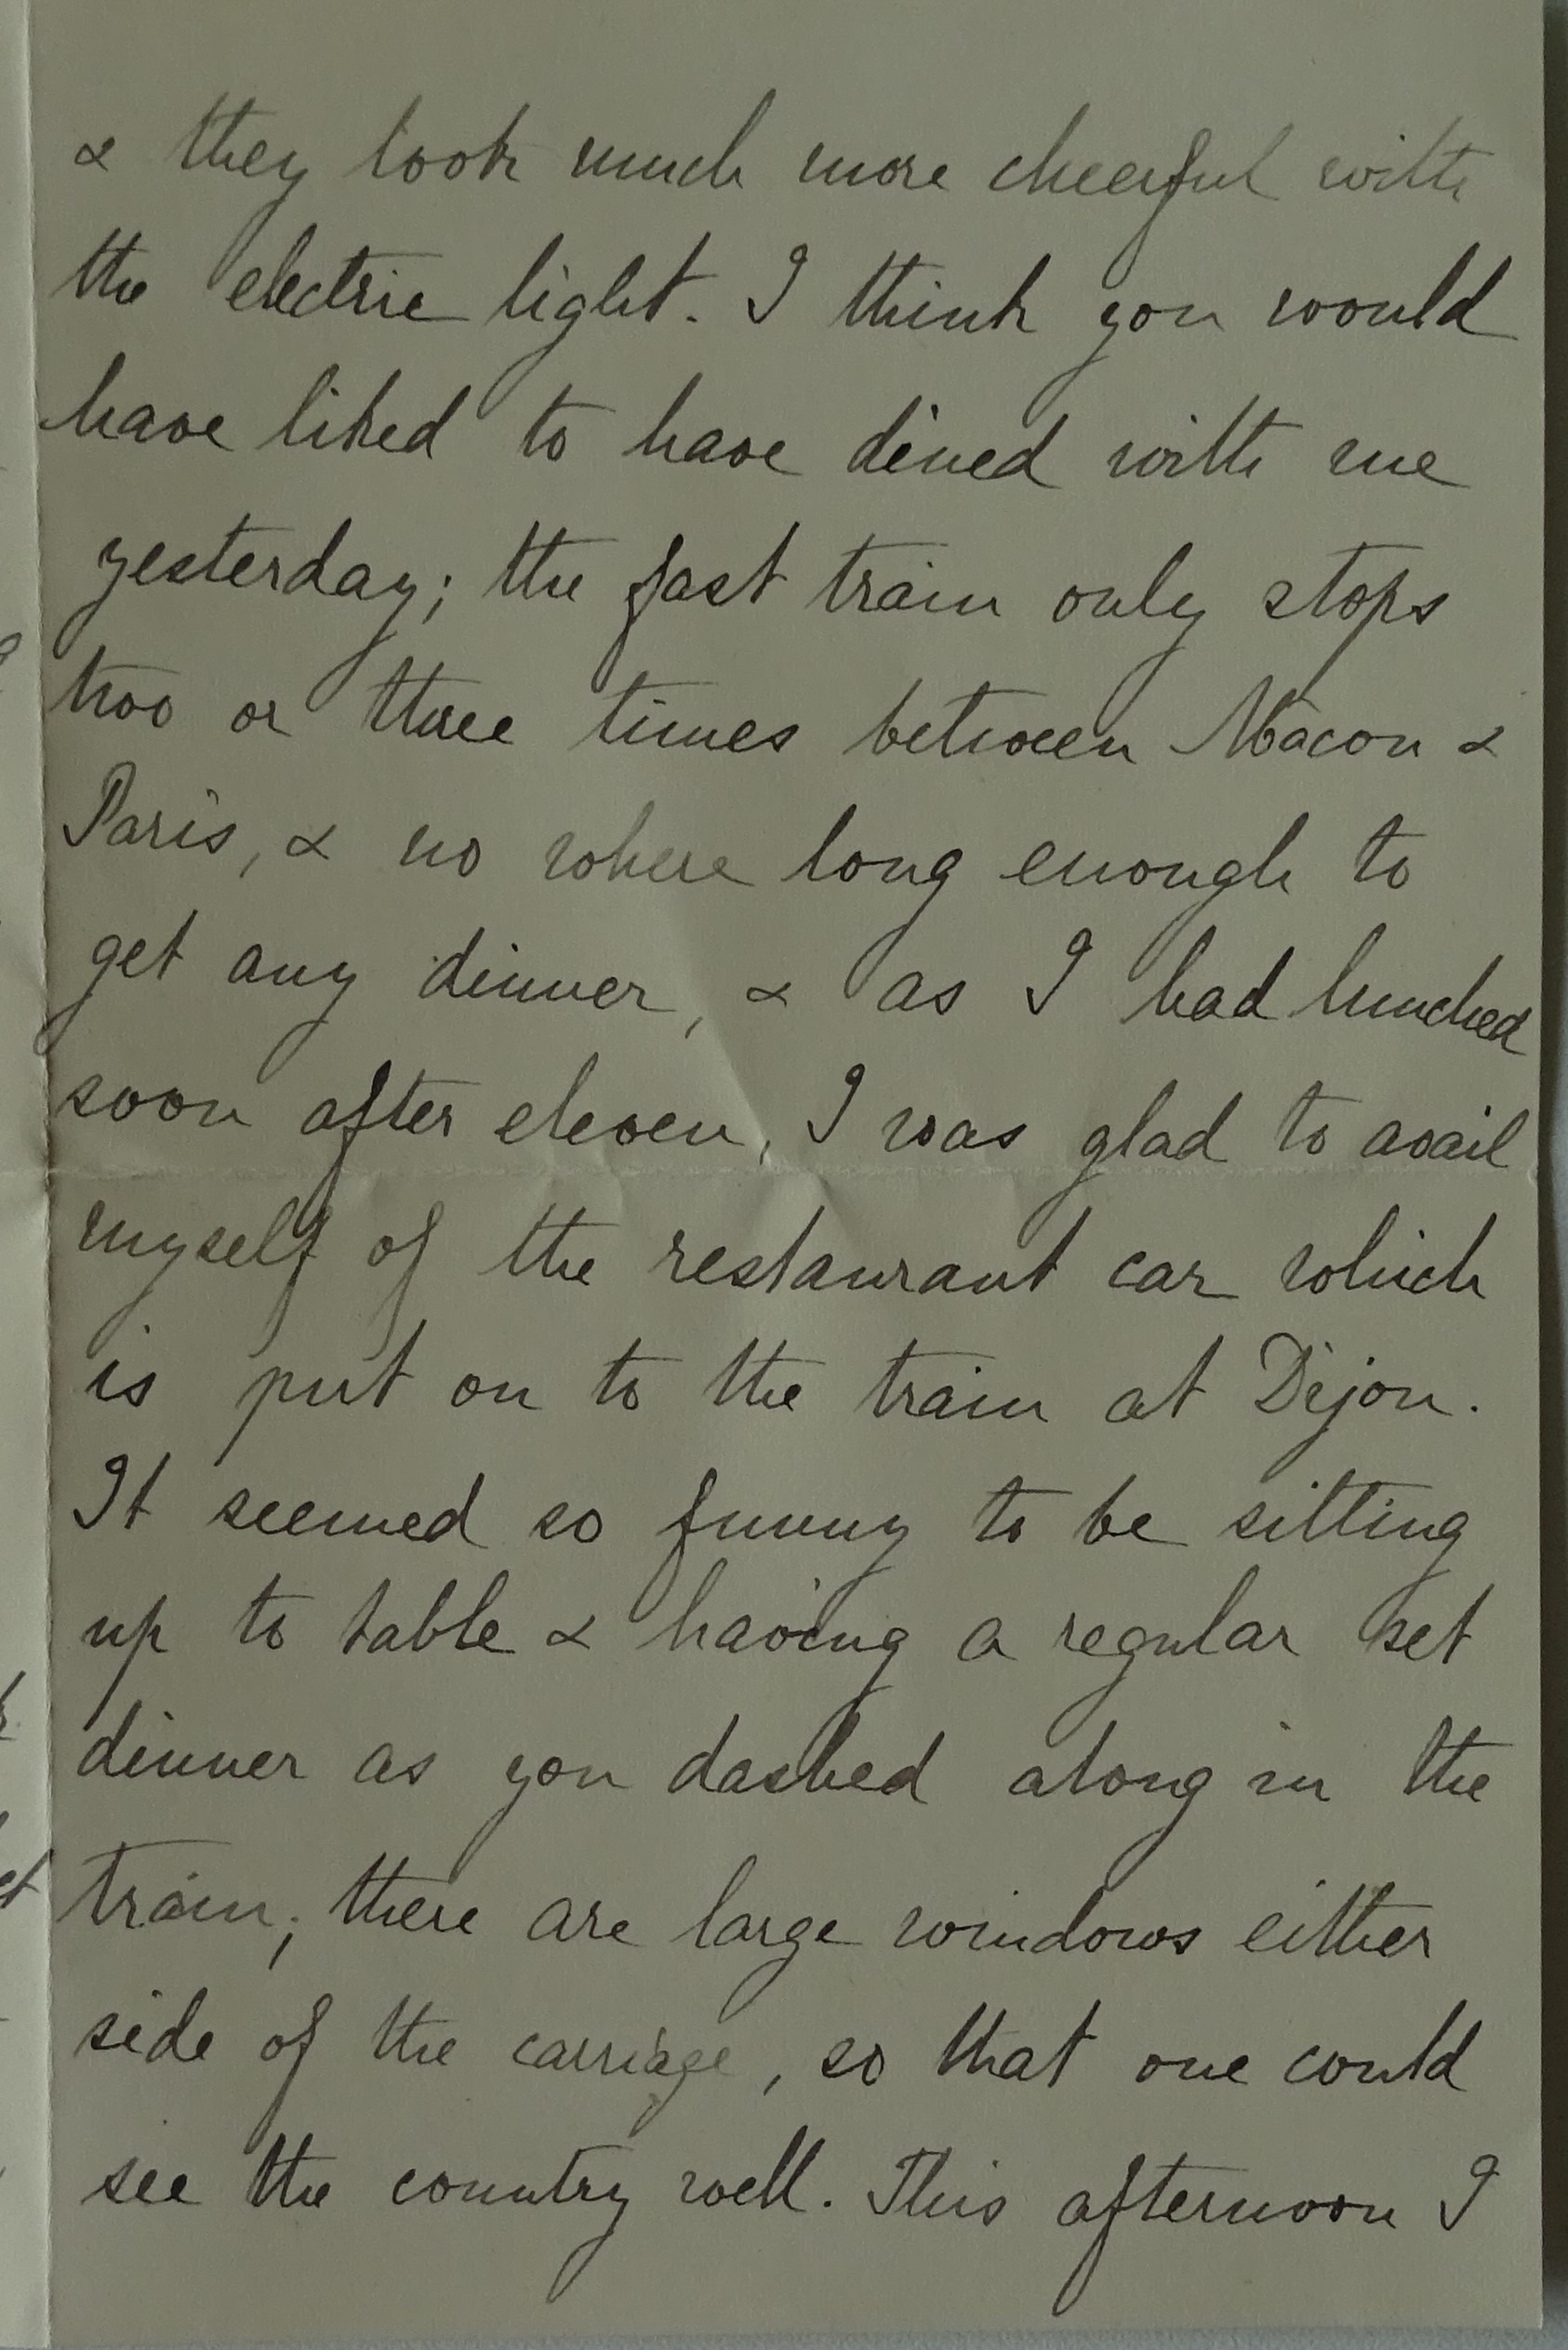 & they look much more cheerful with
the electric light. I think you would
have liked to have dined with me
yesterday; the fast train only stops
two or three times between Macon &
Paris, & no where long enough to
get any dinner, & as I had lunched
soon after eleven, I was glad to avail
myself of the restaurant car which
is put on to the train at Dijon.
It seemed so funny to be sitting
up to table & having a regular set
dinner as you dashed along in the
train; there are large windows either
side of the carriage, so that one could
see the country well. This afternoon I